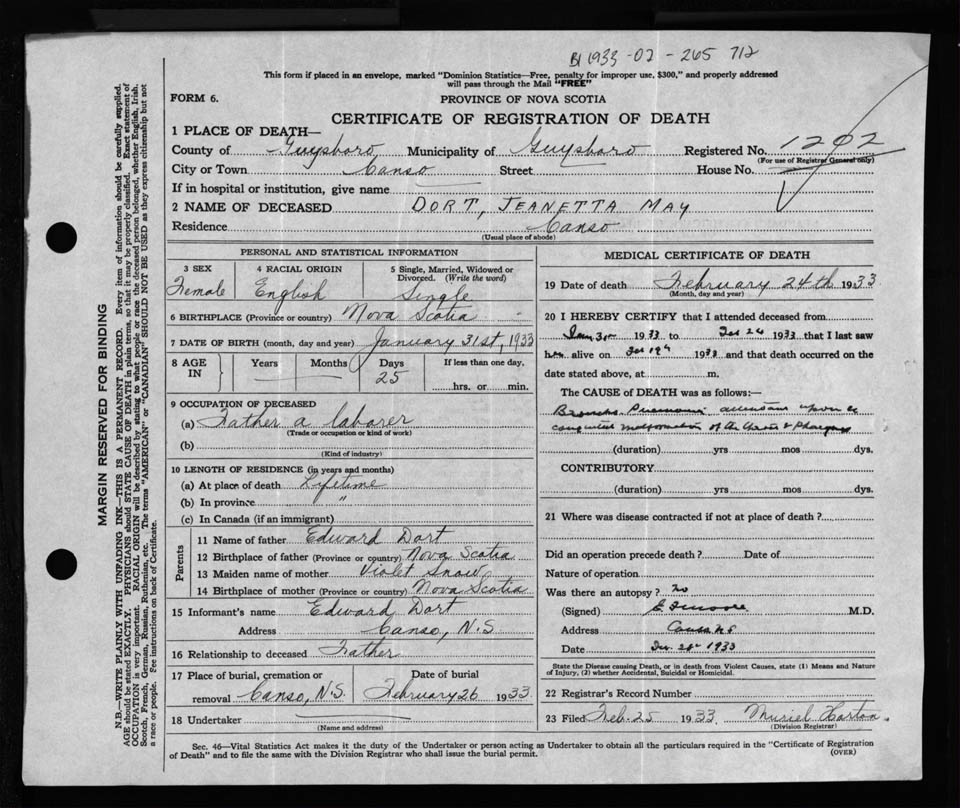 B1933-02-265 712
This form if placed in an envelope, marked "Dominion Statistics—Free, penalty for improper use, $300," and properly addressed
will pass through the Mail "FREE"
FORM 6.
PROVINCE OF NOVA SCOTIA
CERTIFICATE OF REGISTRATION OF DEATH
1 PLACE OF DEATH—
County of Guysboro Municipality of Guysboro Registered No. 1202
(For use of Registrar General only)
City or Town Canso Street House No.
If in hospital or institution, give name
2 NAME OF DECEASED DORT, JEANETTA MAY
Residence Canso
(Usual place of abode)
PERSONAL AND STATISTICAL INFORMATION
3 SEX 4 RACIAL ORIGIN 5 Single, Married, Widowed or
Divorced. (Write the word)
Female English Single
6 BIRTHPLACE (Province or country) Nova Scotia
7 DATE OF BIRTH (month, day and year) January 31st, 1933
8 AGE IN Years Months Days If less than one day,
25 hrs. or min.
9 OCCUPATION OF DECEASED
(a) Father a laborer
(Trade or occupation or kind of work)
(b)
(Kind of industry)
10 LENGTH OF RESIDENCE (in years and months)
(a) At place of death Lifetime
(b) In province "
(c) In Canada (if an immigrant)
Parents
11 Name of father Edward Dort
12 Birthplace of father (Province or country) Nova Scotia
13 Maiden name of mother Violet Snow
14 Birthplace of mother (Province or country) Nova Scotia
15 Informant's name Edward Dort
Address Canso, N.S.
16 Relationship to deceased Father
17 Place of burial, cremation or Date of burial
removal Canso, N.S. February 26 1933
18 Undertaker
(Name and address)
MEDICAL CERTIFICATE OF DEATH
19 Date of death February 24th 1933
(Month, day and year)
20 I HEREBY CERTIFY that I attended deceased from
1933 to Feb 24 1933, that I last saw
her alive on Feb 1933 and that death occurred on the
date stated above, at m.
The CAUSE of DEATH was as follows:—
Broncho Pneumonia attendant upon a
congenital malformation of the & Pharynx
(duration) yrs mos dys.
CONTRIBUTORY
(duration) yrs. mos dys.
21 Where was disease contracted if not at place of death?
Did an operation precede death? Date of
Nature of operation
Was there an autopsy? No
(Signed) M.D.
Address Canso NS
Date 1933
State the Disease causing Death, or in death from Violent Causes, state (1) Means and Nature
of Injury, (2) whether Accidental, Suicidal or Homicidal.
22 Registrar's Record Number
23 Filed Feb. 25 1933 Muriel Horton
(Division Registrar)
Sec. 46—Vital Statistics Act makes it the duty of the Undertaker or person acting as Undertaker to obtain all the particulars required in the "Certificate of Registration
of Death" and to file the same with the Division Registrar who shall issue the burial permit. (OVER)
MARGIN RESERVED FOR BINDING
N.B.—WRITE PLAINLY WITH UNFADING INK—THIS IS A PERMANENT RECORD. Every item of information should be carefully supplied.
AGE should be stated EXACTLY. PHYSICIANS should STATE CAUSE OF DEATH in plain terms, so that it may be properly classified. Exact statement of
OCCUPATION is very important. RACIAL ORIGIN will be described by stating to what people or race the deceased person belonged, whether English, Irish,
Scotch, French, German, Russian, Ruthenian, etc. The terms "AMERICAN" or "CANADIAN" SHOULD NOT BE USED as they express citizenship but not
a race or people. See instructions on back of Certificate.